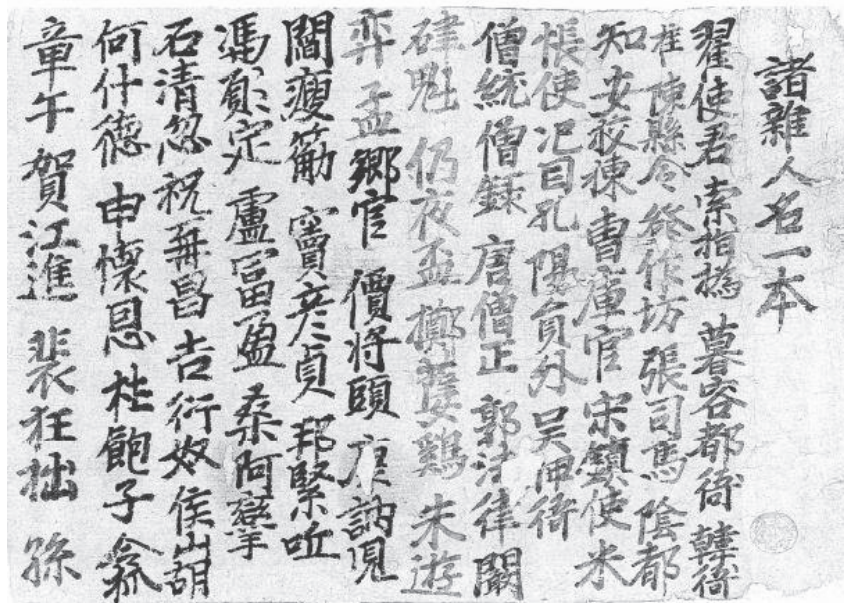 諸雜人名一本
翟使君 索指撝 暮容都衙 韓衙
陳縣令 作坊 張司馬 陰都
知 安教揀 曺庫官 宋鎮使 米
帳使 氾目孔 陽員外 吴衙
僧統 僧録 唐僧正 郭法律 闞
魁 仍夜盃 鷄 朱遊
弈 孟鄉官 價將頭 康訥兒
閻瘦筋 竇彦貞 邦緊
馮定 盧冨盈 桑阿
石清忽 祝再昌 吉衍奴 侯山胡
何什德 申懷恩 杜飽子
章午 賀江進 裴狂拙 孫